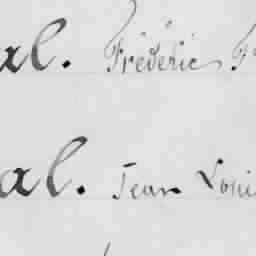 al. Fréderic F
al. Jean Loui